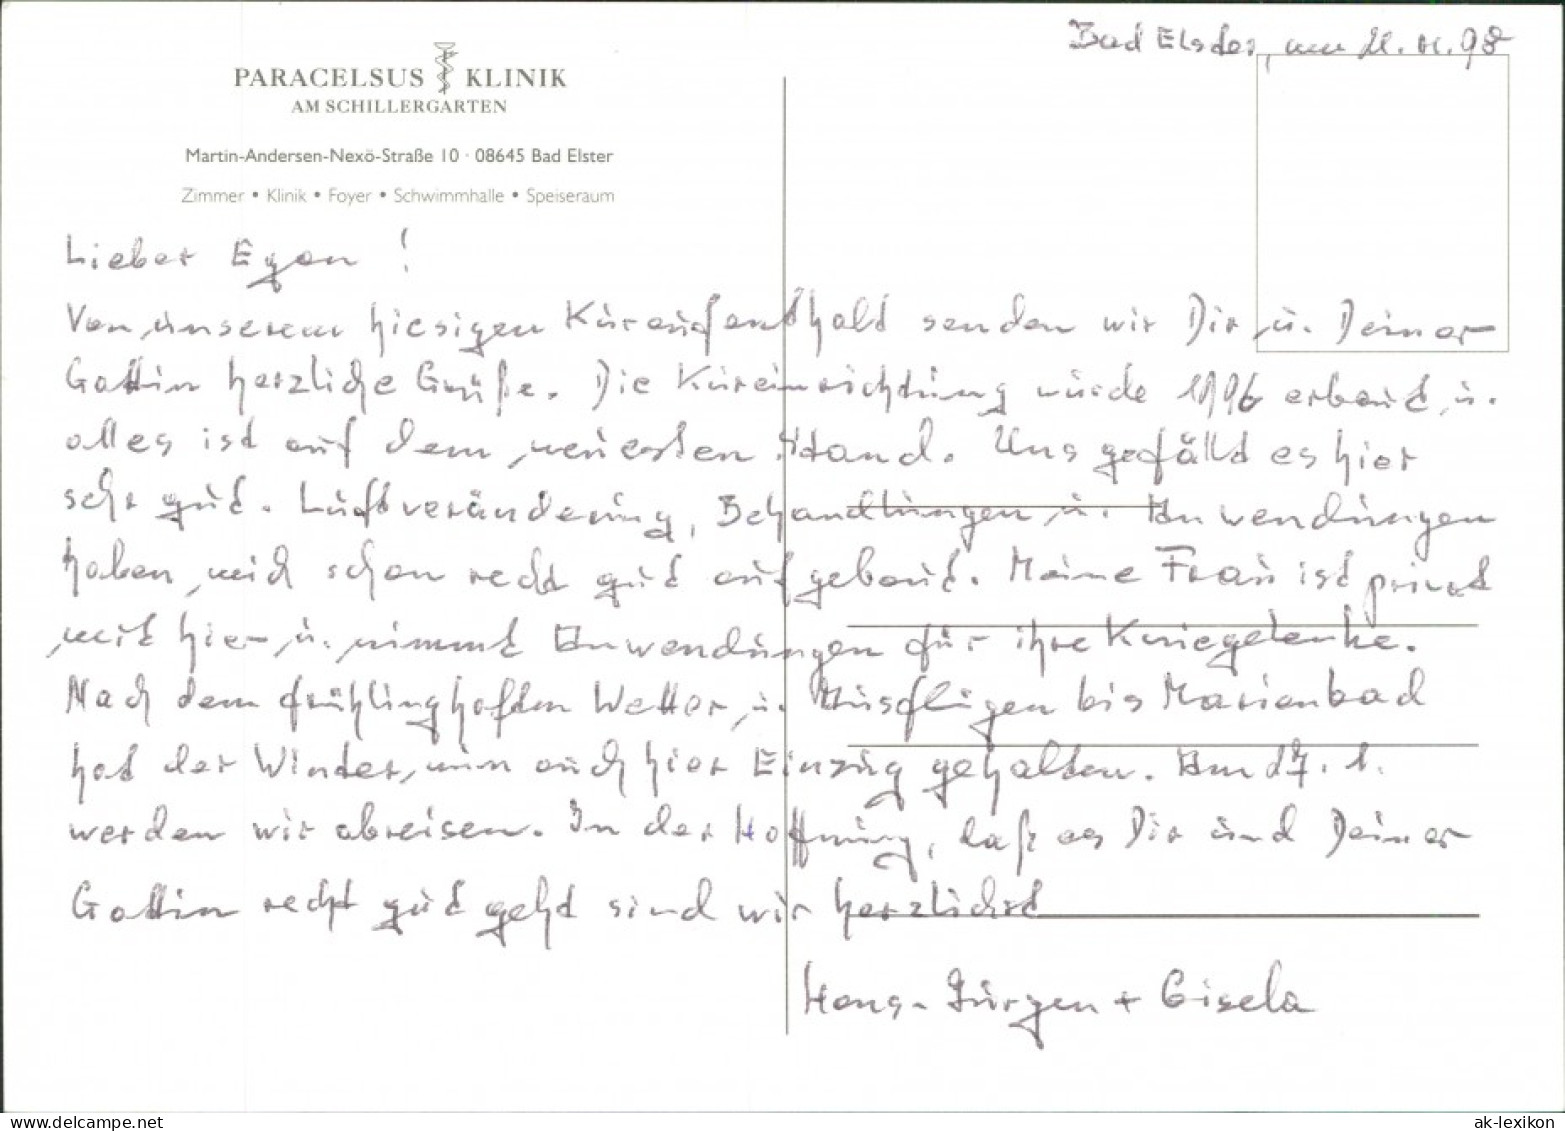 Bad Elster, am 21.01.98
PARACELSUS KLINIK
AM SCHILLERGARTEN
Martin-Andersen-Nexö-Straße 10 · 08645 Bad Elster
Zimmer • Klinik • Foyer • Schwimmhalle • Speiseraum
Lieber Egon!
Von unserem hiesigen Kuraufenthalt senden wir Dir u. Deiner
Gattin herzliche Grüße. Die Kureinrichtung wurde 1996 erbaut u.
alles ist auf dem neuesten Stand. Uns gefällt es hier
sehr gut. Luftveränderung, Behandlungen u. Anwendungen
haben mich schon recht gut aufgebaut. Meine Frau ist privat
mit hier u. nimmt Anwendungen für ihre Kniegelenke.
Nach dem frühlinghaften Wetter u. Ausflügen bis Marienbad
hat der Winter, nun auch hier Einzug gehalten. Am 27.1.
werden wir abreisen. In der Hoffnung, daß es Dir und Deiner
Gattin recht gut geht sind wir herzlichst
Hans-Jürgen + Gisela
delcampe.net
ak-lexikon